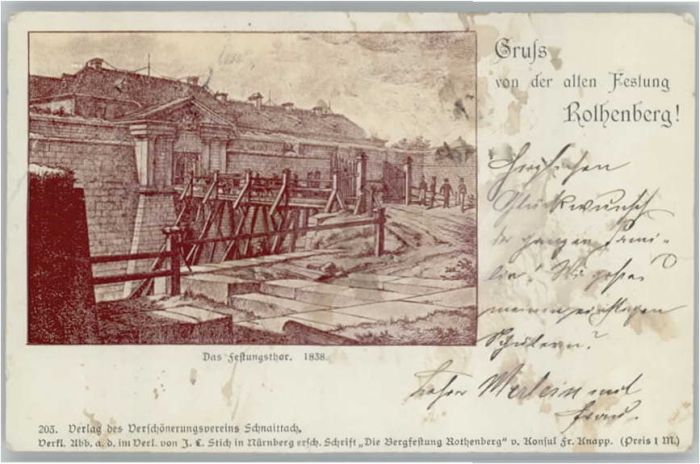 Gruss
von der alten Festung
Rothenberg!
Herzlichen
Glückwunsch
der ganzen Fami-
lie!
Schülern?
Merlein und
Frau.
Das Festungsthor. 1838.
203. Verlag des Verschönerungsvereins Schnaittach.
Verkl. Abb. a. d. im Verl. von J. L. Stich in Nürnberg ersch. Schrift „Die Bergfestung Rothenberg" v. Konsul Fr. Knapp. (Preis 1 M.)